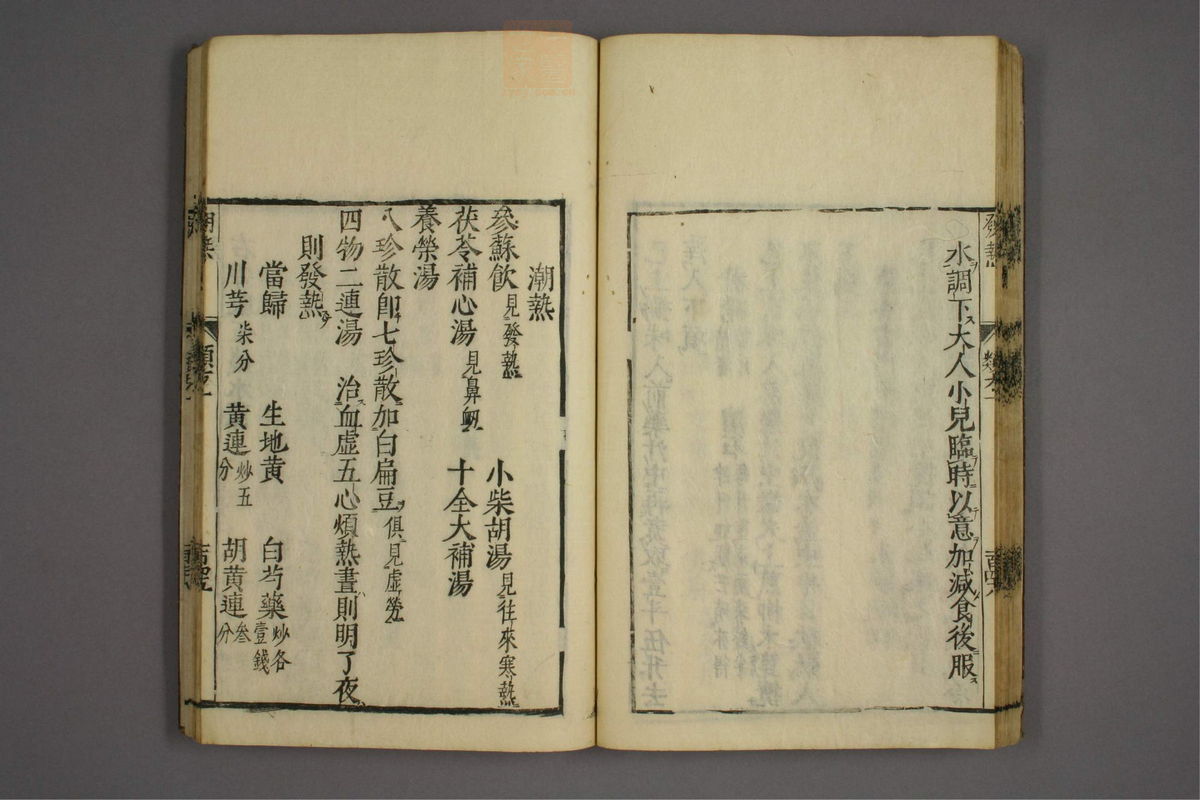 發熱
水調下ス大人小兒臨時以意加減食後服ス
潮熱
參蘇飲見發熱 小柴胡湯見往來寒熱
茯苓補心湯見鼻衂 十全大補湯
養榮湯
八珍散即七珍散加白扁豆俱見虛勞
四物二連湯 治血虛五心煩熱晝則明了夜
則發熱
當歸 生地黃 白芍藥炒各壹錢
川芎柒分 黃連炒五分 胡黃連叁分